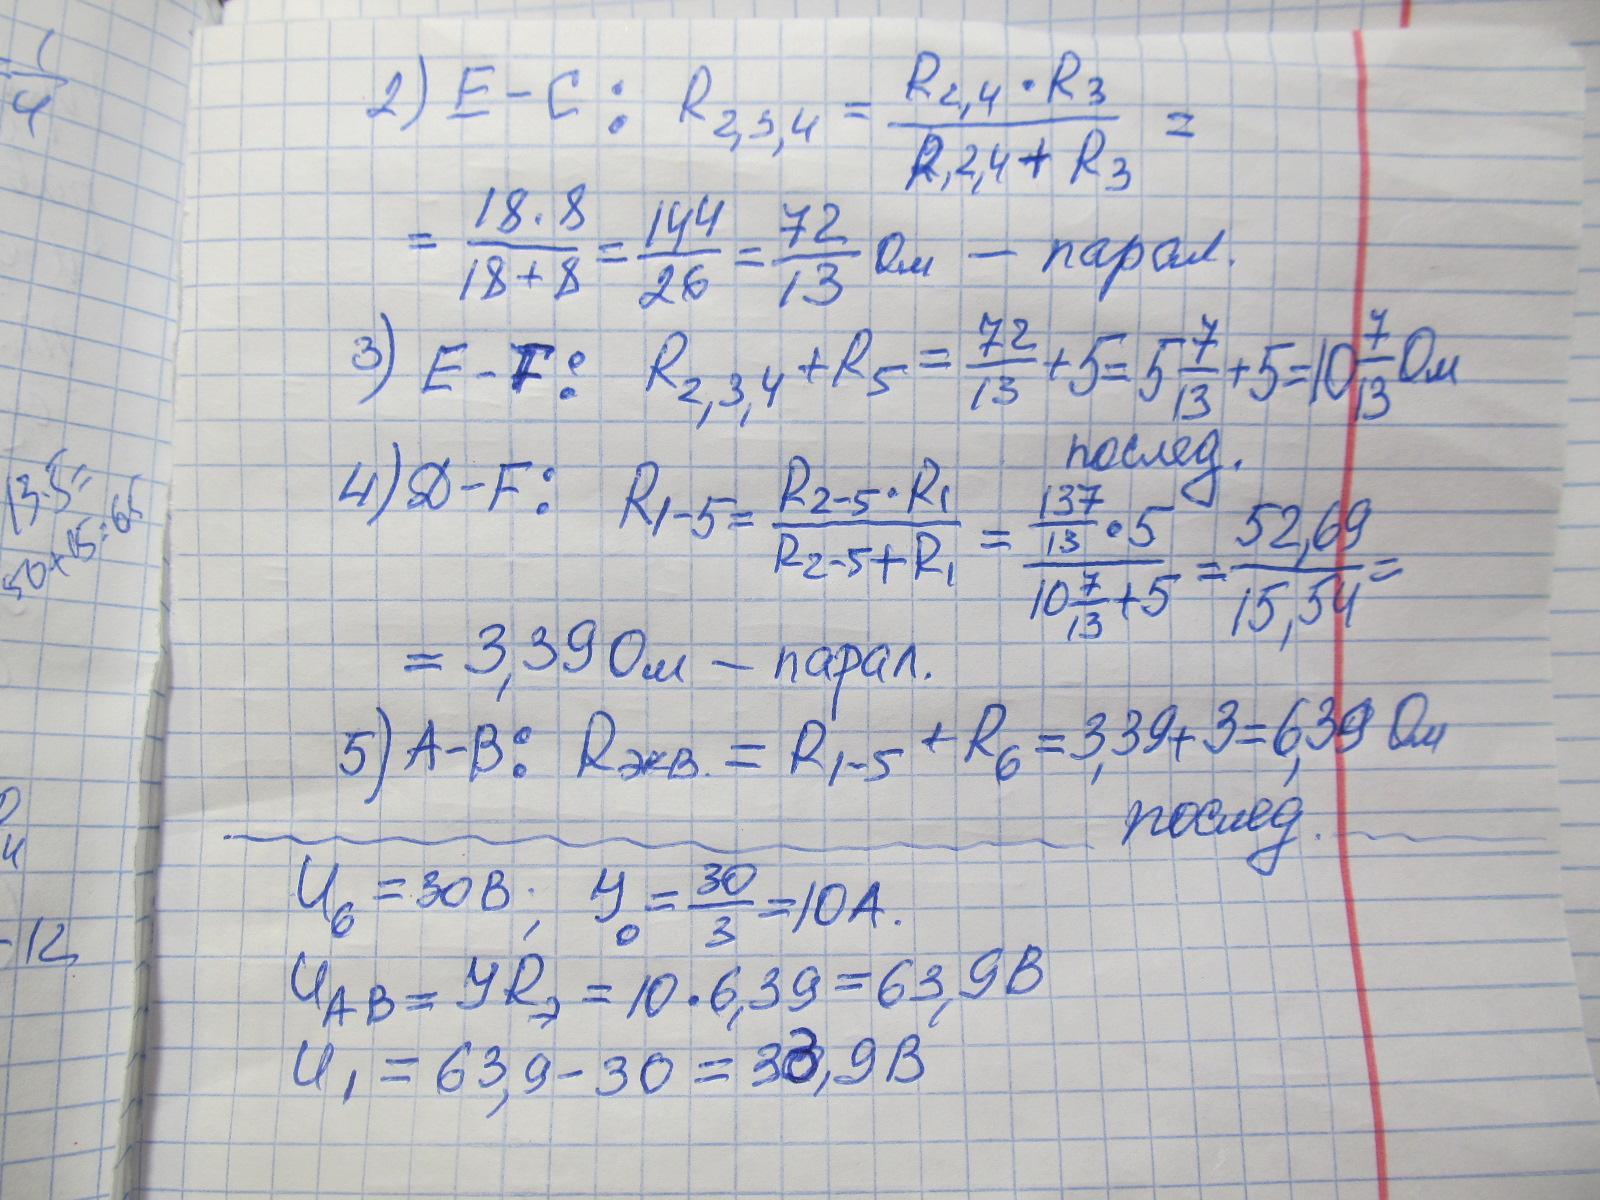 1
4
2) E - C: R2,3,4 = R2,4 · R3 / R2,4 + R3 =
= 18 · 8 / 18 + 8 = 144 / 26 = 72 / 13 Ом — парал.
3) E - F: R2,3,4 + R5 = 72/13 + 5 = 5 7/13 + 5 = 10 7/13 Ом
послед.
4) D - F: R1-5 = R2-5 · R1 / R2-5 + R1 = 137/13 · 5 / 10 7/13 + 5 = 52,69 / 15,54 =
= 3,39 Ом — парал.
5) A - B: Rэкв. = R1-5 + R6 = 3,39 + 3 = 6,39 Ом
послед.
U6 = 30 В; У0 = 30/3 = 10 А.
UAB = УRэ = 10 · 6,39 = 63,9 В
U1 = 63,9 - 30 = 33,9 В
13·5=
50+15=65
4
-12